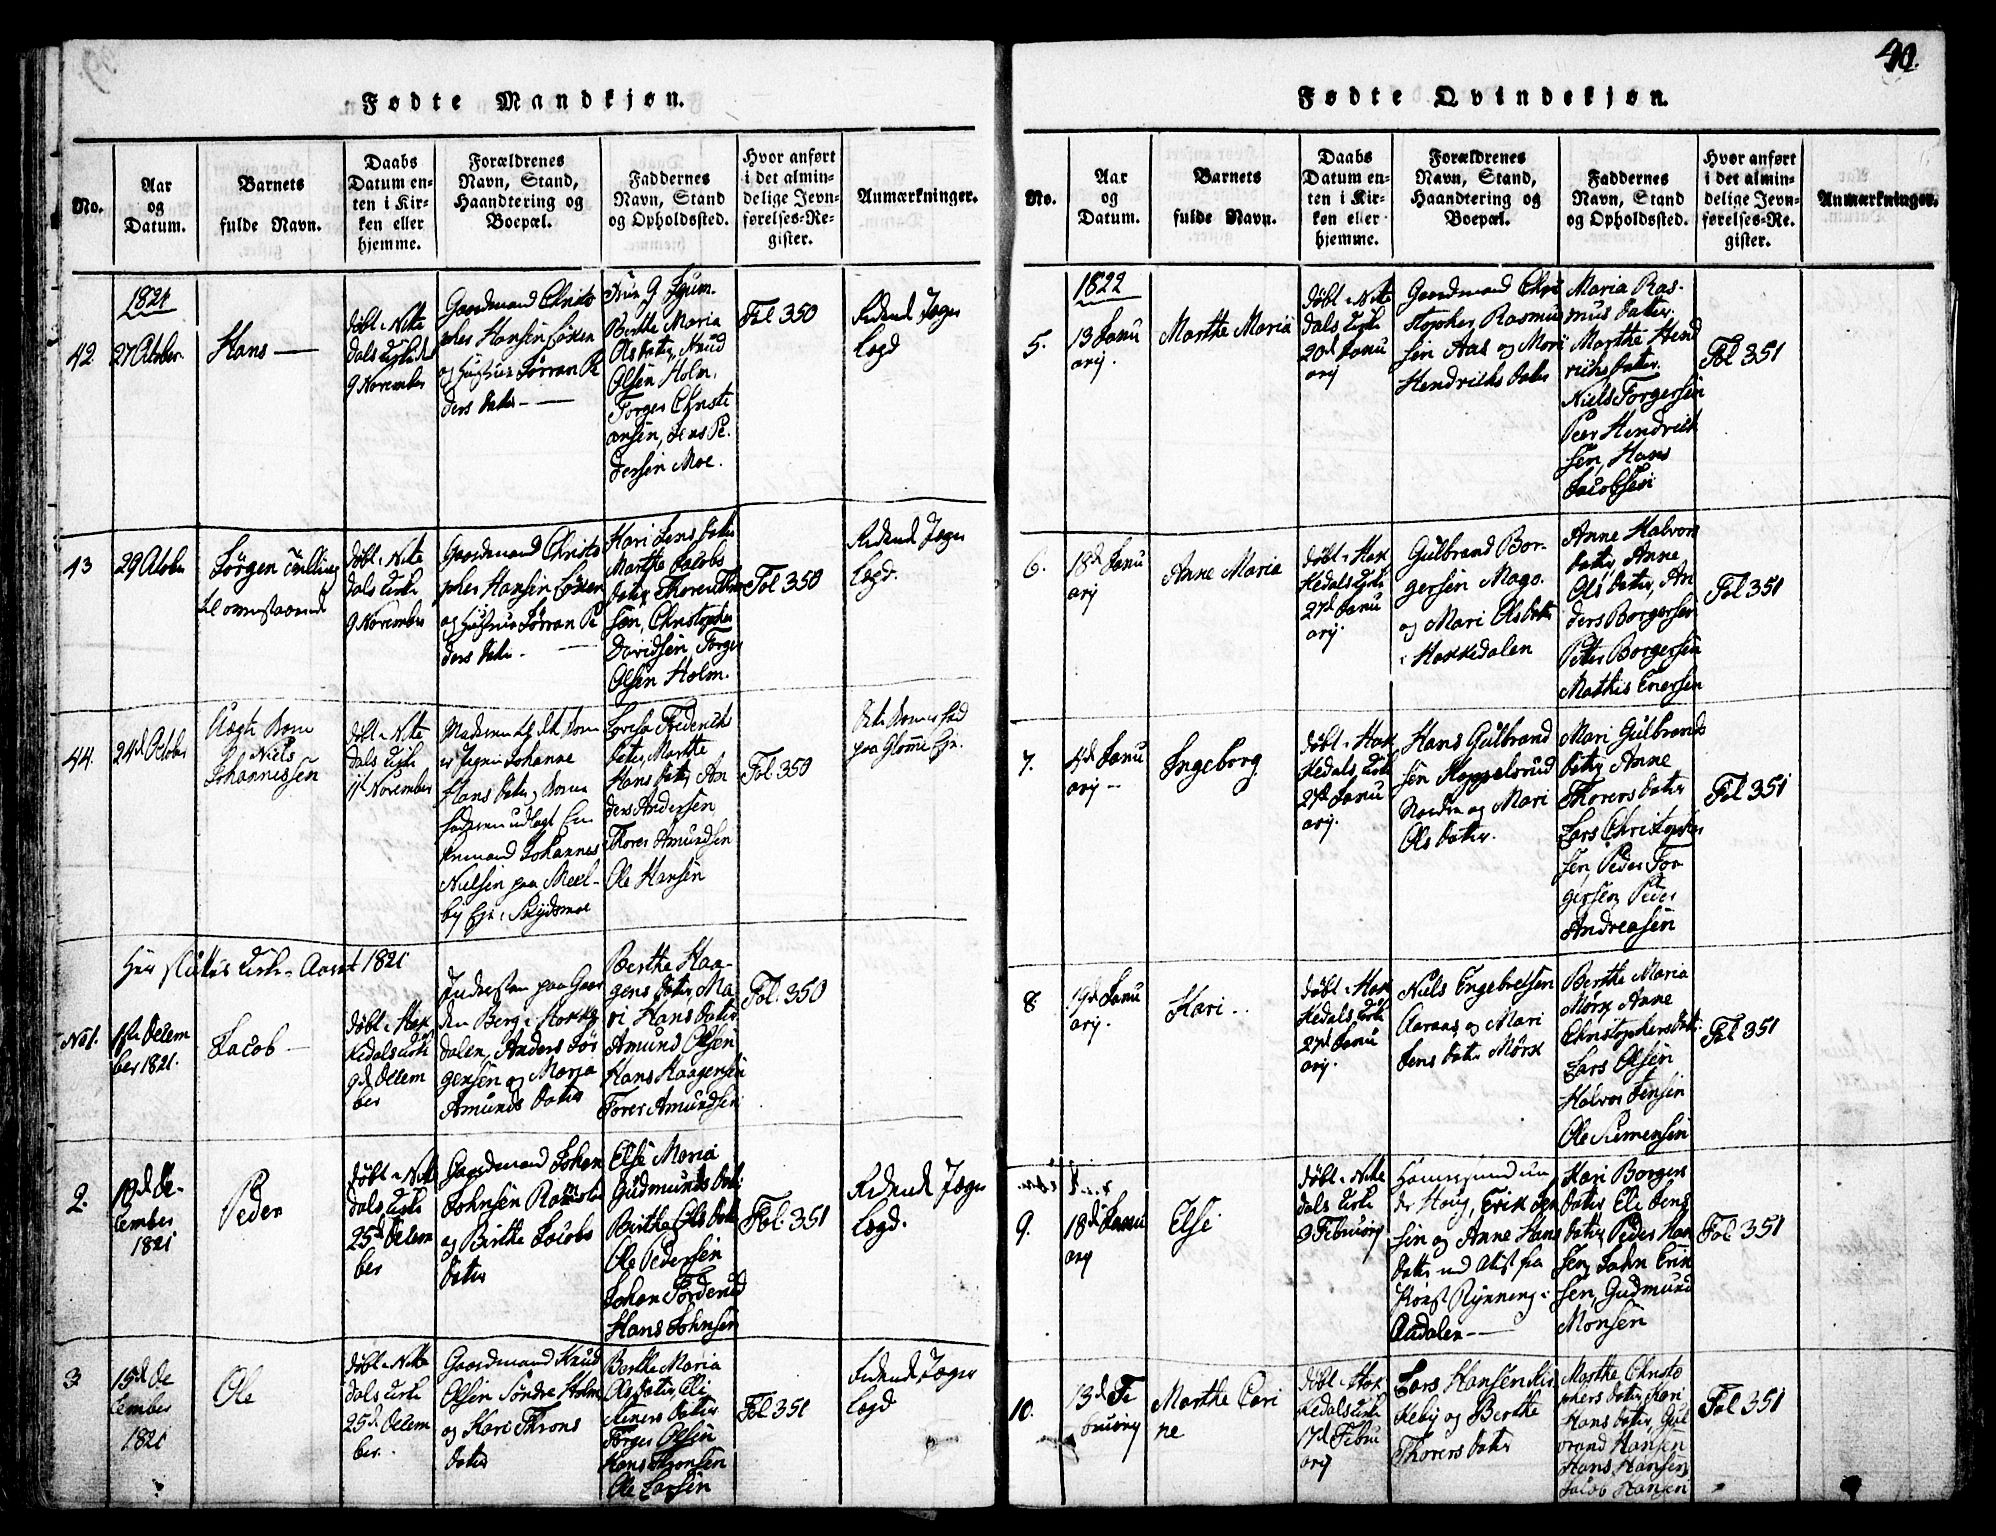 40.
Fødte Mandkjøn.
No.
Aar
og
Datum.
Barnets
fulde Navn.
Daabs
Datum en-
ten i Kir-
ken eller
hjemme.
Forældrenes
Navn, Stand,
Haandtering og
Boepæl.
Faddernes
Navn, Stand
og Opholdssted.
Hvor anført
i det almin-
delige Jevn-
førelses-Re-
gister.
Anmærkninger.
42
1821
27 October
Hans
døbt i Nite
dals Kirke d
9 November
Gaardmand Christo
pher Hansen
og Hustrue Jørran Pe
ders datter
Berthe Maria
Olsdatter, Knud
Olsen Holm,
Torger Christi
ansen, Jens Pe
dersen Moe.
Fol 350
Ridende Jæger
Lægd
43
29 October
Jørgen Tvilling
til ovenstaaende
døbt i Nite
dals Kirke
9 November
Gaardmand Christo
pher Hansen
og Hustrue Jørran Pe
ders datter
Kari Jens datter
Marthe Jacobs
datter, Thoren
Sen, Christopher
Davidsen, Torger
Olsen Holm.
Fol 350
Ridende Jæger
Lægd.
44.
24d October
Uægte Barn
Niels
Johannessen
døbt i Nite
dals Kirke
11t November
Moderen til dette Barn
er Pigen Johanne
Hans datter, Barne
faderen udlagt En
kemand Johannes
Nielsen paa Meel-
by Eje i Skydsmoe
Lovisa Frederichs
datter, Marthe
Hans datter, An
ders Andersen,
Thorer Amundsen
Ole Hansen
Fol 350
Her sluttes Kirke-Aaret 1821
No 1.
1ste Decem
ber 1821.
Jacob
døbt i Hak
kedals Kirke
9d Decem
ber
Inderster paa Gaar
den Berg i Hakke
dalen, Anders Jør
gensen og Marja
Amunds datter
Berthe Haa-
gens datter, Ma
ri Hans datter
Amund Olsen
Hans Haagensen
Torer Amundsen
Fol. 350
2.
19d De-
cember
1821
Peder
døbt i Nite
dals Kirke
25d Decem
ber
Gaardmand Johan
Johnsen
og Birthe Jacobs
datter
Else Maria
Gudmunds dat
Birthe Ols datter
Ole Pedersen
Johan
Hans Johnsen
Fol. 351
Ridende Jæger
Lægd.
3
15d De
cember
1821
Ole
døbt i Nite
dals Kirke
25d Decem
ber.
Gaardmand Knud
Olsen Søndre Holm
og Kari Throns
datter
Berthe Maria
Olsdatter, Eli
Steners datter
Torger Olsen
Hans Thronsen
Ole Larsen
Fol 351
Ridende Jæger
Lægd
Fødte Qvindekjøn.
No.
Aar
og
Datum.
Barnets
fulde Navn.
Daabs
Datum en-
ten i Kir-
ken eller
hjemme.
Forældrenes
Navn, Stand,
Haandtering og
Boepæl.
Faddernes
Navn, Stand
og Opholdssted.
Hvor anført
i det almin-
delige Jevn-
førelses-Re-
gister.
Anmærkninger.
5.
1822
13 Janu
arij.
Marthe Maria
døbt i Nite
dals Kirke
20d Janu
arij
Gaardmand Chri
stopher Rasmu
sen Aas og Mari
Hendrichs datter
Maria Ras-
mus datter,
Marthe Hend
richs datter
Niels Torgersen
Peer Hendrich
sen, Hans
Jacobsen
Fol 351
6.
18d Janu
arij
Anne Maria
døbt i Hak
kedals Kirke
27d Janu
arij.
Gulbrand Bor-
gersen Mago
og Mari Olsdatter
i Hakkedalen
Anne Halvors
datter, Anne
Ols datter, An
ders Borgersen
Peter Borgersen
Mathis Enersen
Fol 351
7.
4d Janu
arij
Ingeborg
døbt i Hak
kedals Kirke
27d Janu
arij.
Hans Gulbrand
sen
Nordre og Mari
Ols datter.
Mari Gulbrands
datter, Anne
Thorers datter
Lars Christopher
sen, Peder Tor
gersen, Peder
Andreasen
Fol 351
8
19d Janu
arij.
Kari
døbt i Hak
kedals Kirke
27d Janu
arij.
Niels Engebretsen
Aaraas og Mari
Jens datter Mørk
Berthe Maria
Mørk, Anne
Christophers datter
Lars Olsen
Halvor Jensen
Ole Simensen
Fol 351
9.
18d Janu
arij
Else
døbt i Nite
dals Kirke
3 Februarij
Huusmand un
der Haug, Erik Jen
sen og Anne Hans
datter med Attest fra
Rynning i
Aadalen
Kari Borgers
datter, Eli Jens
datter, Peder Han
sen, John Erik
sen, Gudmund
Monsen
Fol 351
10.
13d Fe
bruarij
Marthe Cari
ne
døbt i Hak
kedals Kirke
17d Febru
arij
Lars Hansen Kir
keby og Berthe
Thorers datter
Marthe Christo
phers datter, Kari
Hans datter, Gul
brand Hansen
Hans Hansen,
Jacob Hansen
Fol 351